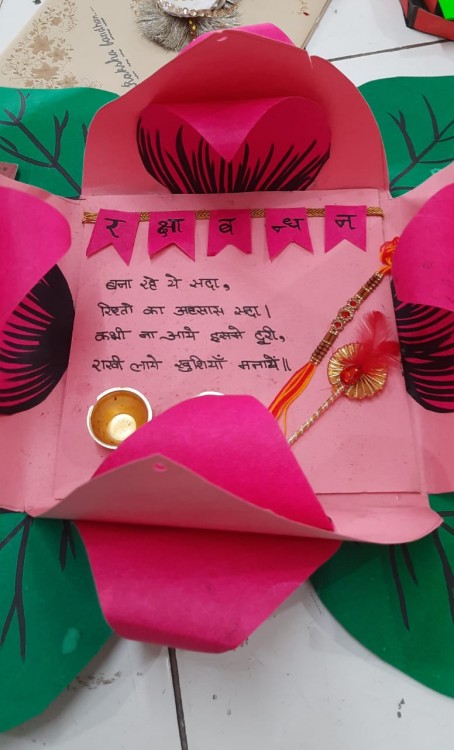 raksha bandhan
र क्षा ब न्ध न
बना रहे ये सदा,
रिश्तो का अहसास सदा।
कभी ना आये इसमे दूरी,
राखी लाये खुशियाँ मनायें॥